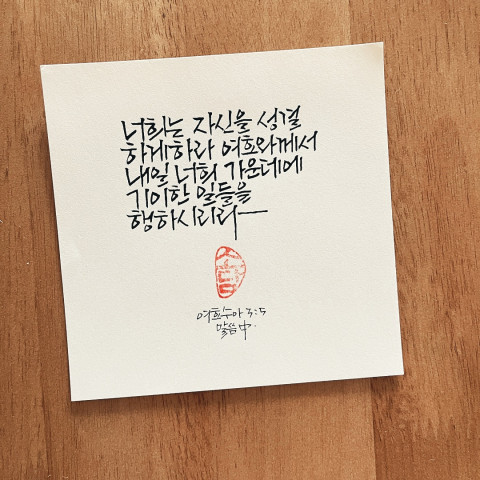 너희는 자신을 성결
하게하라 여호와께서
내일 너희 가운데에
기이한 일들을
행하시리라
여호수아 3:5
말씀中.